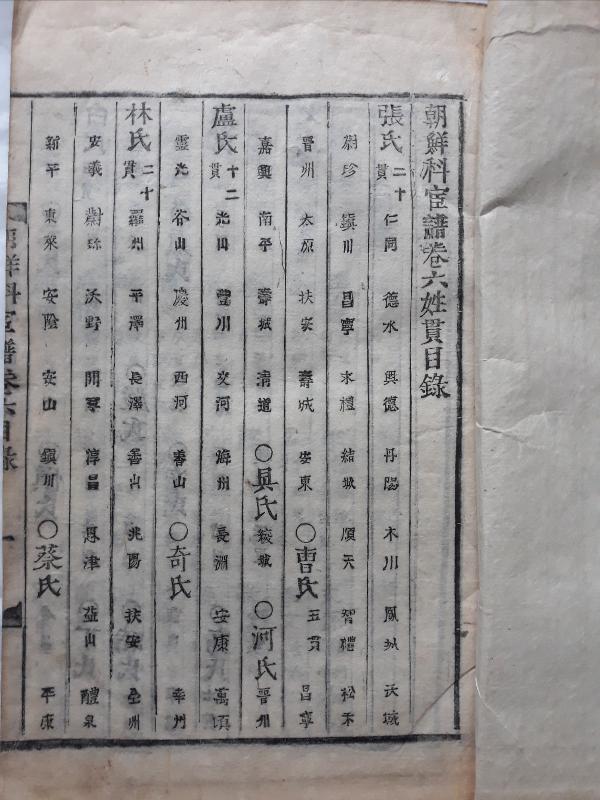 朝鮮科宦譜卷六姓貫目錄
張氏 二十貫 仁同 德水 興德 丹陽 木川 鳳城 沃城
蔚珍 鎭川 昌寧 求禮 結城 順天 智禮 松禾
晋州 太原 扶安 壽城 安東 〇曺氏 五貫 昌寧
嘉興 南平 壽城 淸道 〇具氏 綾城 〇河氏 晋州
盧氏 十二貫 光田 豊川 交河 海州 長淵 安康 萬頃
靈光 谷山 慶州 西河 善山 〇奇氏 幸州
林氏 二十貫 羅州 平澤 長澤 善山 兆陽 扶安 全州
安義 蔚珍 沃野 開寧 淳昌 恩津 益山 醴泉
新平 東萊 安陰 安山 鎭川 〇蔡氏 平康
朝鮮科宦譜卷六目錄 一